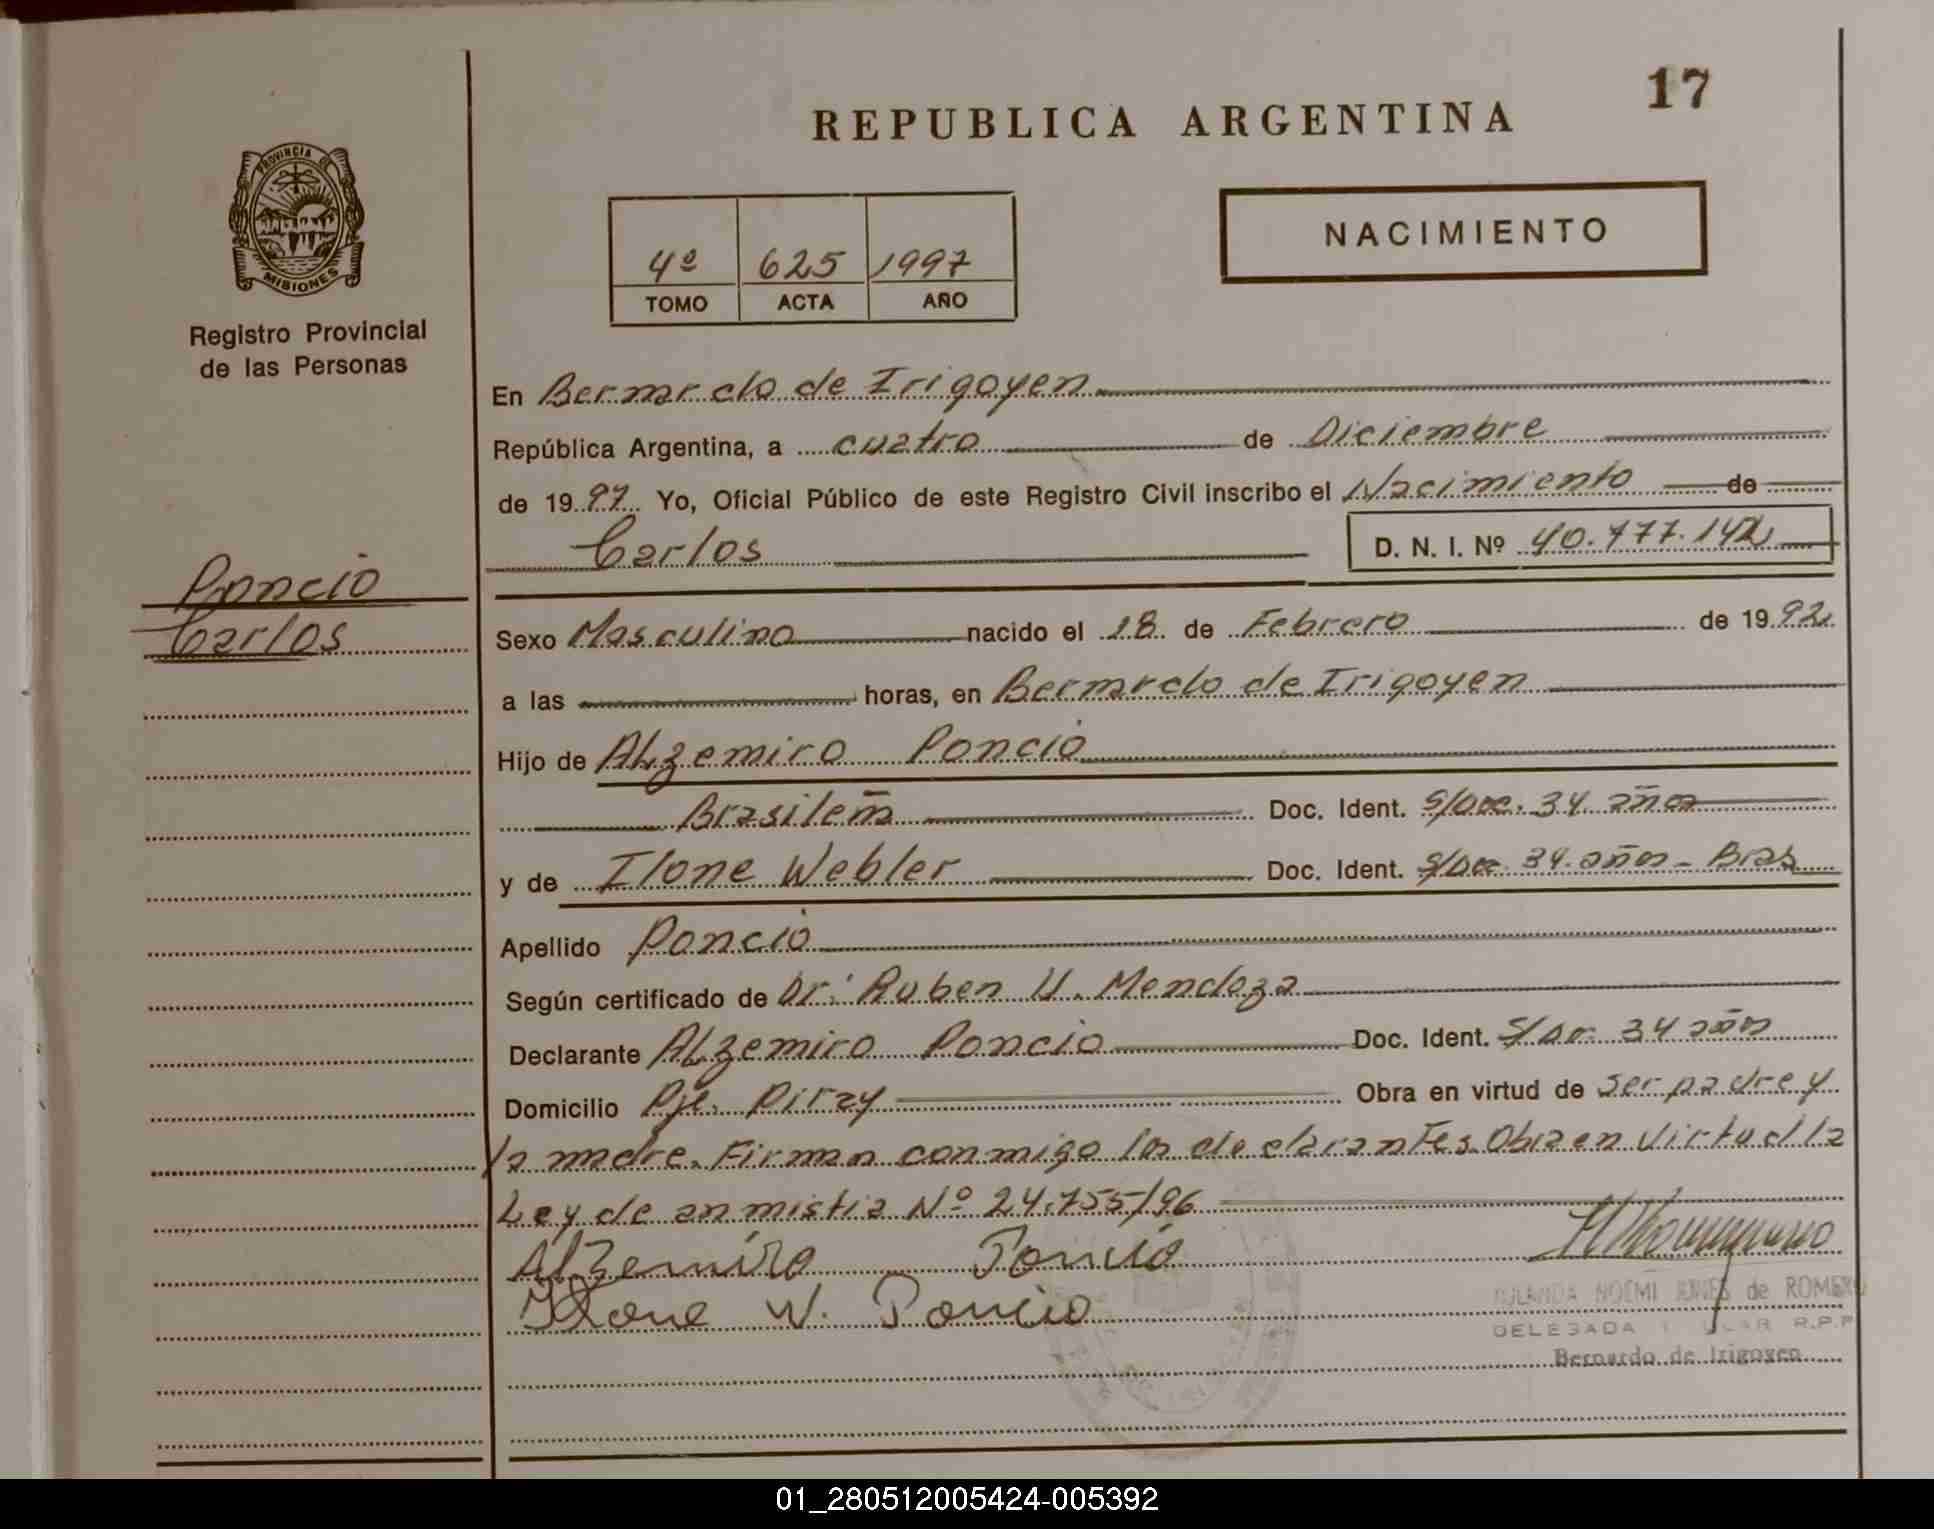 17
REPUBLICA ARGENTINA
NACIMIENTO
4º 625 1997
TOMO ACTA AÑO
PROVINCIA DE
MISIONES
Registro Provincial
de las Personas
Poncio
Carlos
En Bernardo de Irigoyen
República Argentina, a cuatro de Diciembre
de 1997 Yo, Oficial Público de este Registro Civil inscribo el Nacimiento de
Carlos D. N. I. Nº 40.477.142
Sexo Masculino nacido el 18 de Febrero de 1992
a las horas, en Bernardo de Irigoyen
Hijo de Alzemiro Poncio
Brasileño Doc. Ident. S/Doc. 34 años
y de Ilone Webler Doc. Ident. S/Doc. 34 años - Bras
Apellido Poncio
Según certificado de Dr. Ruben U. Mendoza
Declarante Alzemiro Poncio Doc. Ident. S/Do. 34 años
Domicilio Pje. Piray Obra en virtud de ser padre y
la madre. Firman conmigo los declarantes. Obra en virtud la
Ley de anmistia Nº 24.755/96
Alzemiro Poncio
Ilone W. Poncio
NOEMI de ROMERO
DELEGADA R.P.P
Bernardo de Irigoyen
01_280512005424-005392